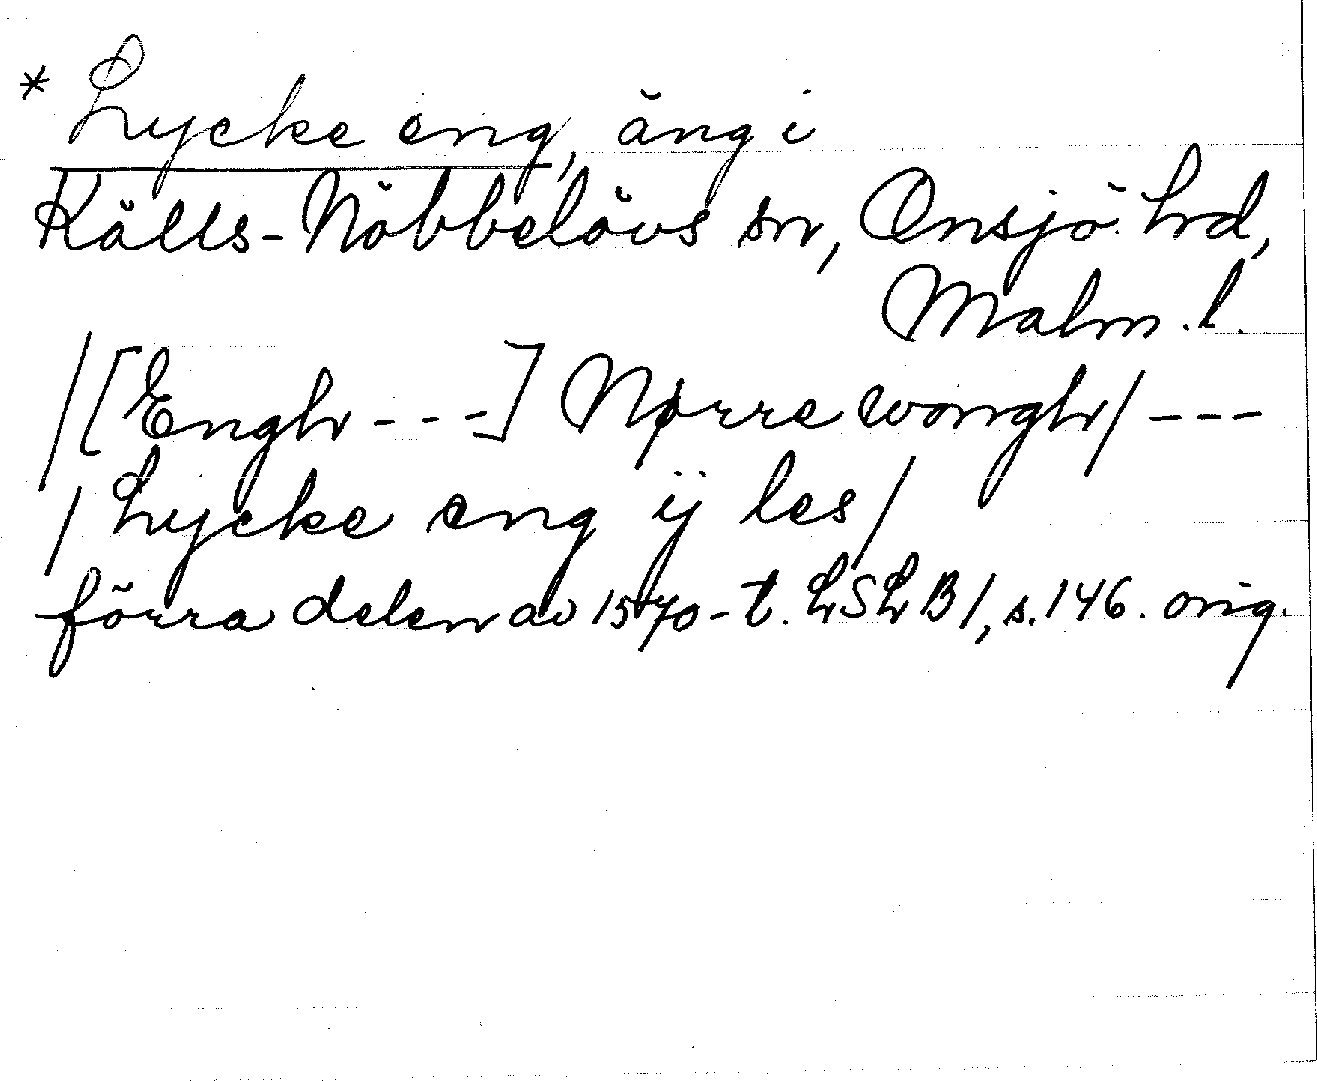 * Lycke eng, äng i
Källs-Nöbbelövs sn, Onsjö hd,
Malm. l.
/[Engh - - -] Nørre wongh/ - - -
/ Lycke eng ij les/
förra delen av 1570-t. LSLB1, s. 146. orig.